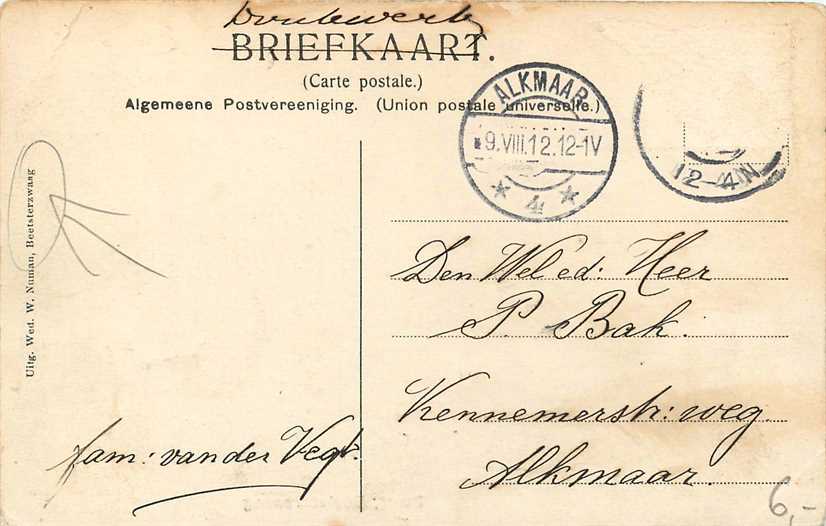 Drukwerk
BRIEFKAART.
(Carte postale.)
Algemeene Postvereeniging. (Union postale universelle.)
ALKMAAR
9.VIII.12.12-1V
* 4 *
12-4N
Uitg. Wed. W. Numan, Beetsterzwaag
Den Weled: Heer
P. Bak.
Kennemerstr: weg
Alkmaar.
fam: van der Vegt.
6,-